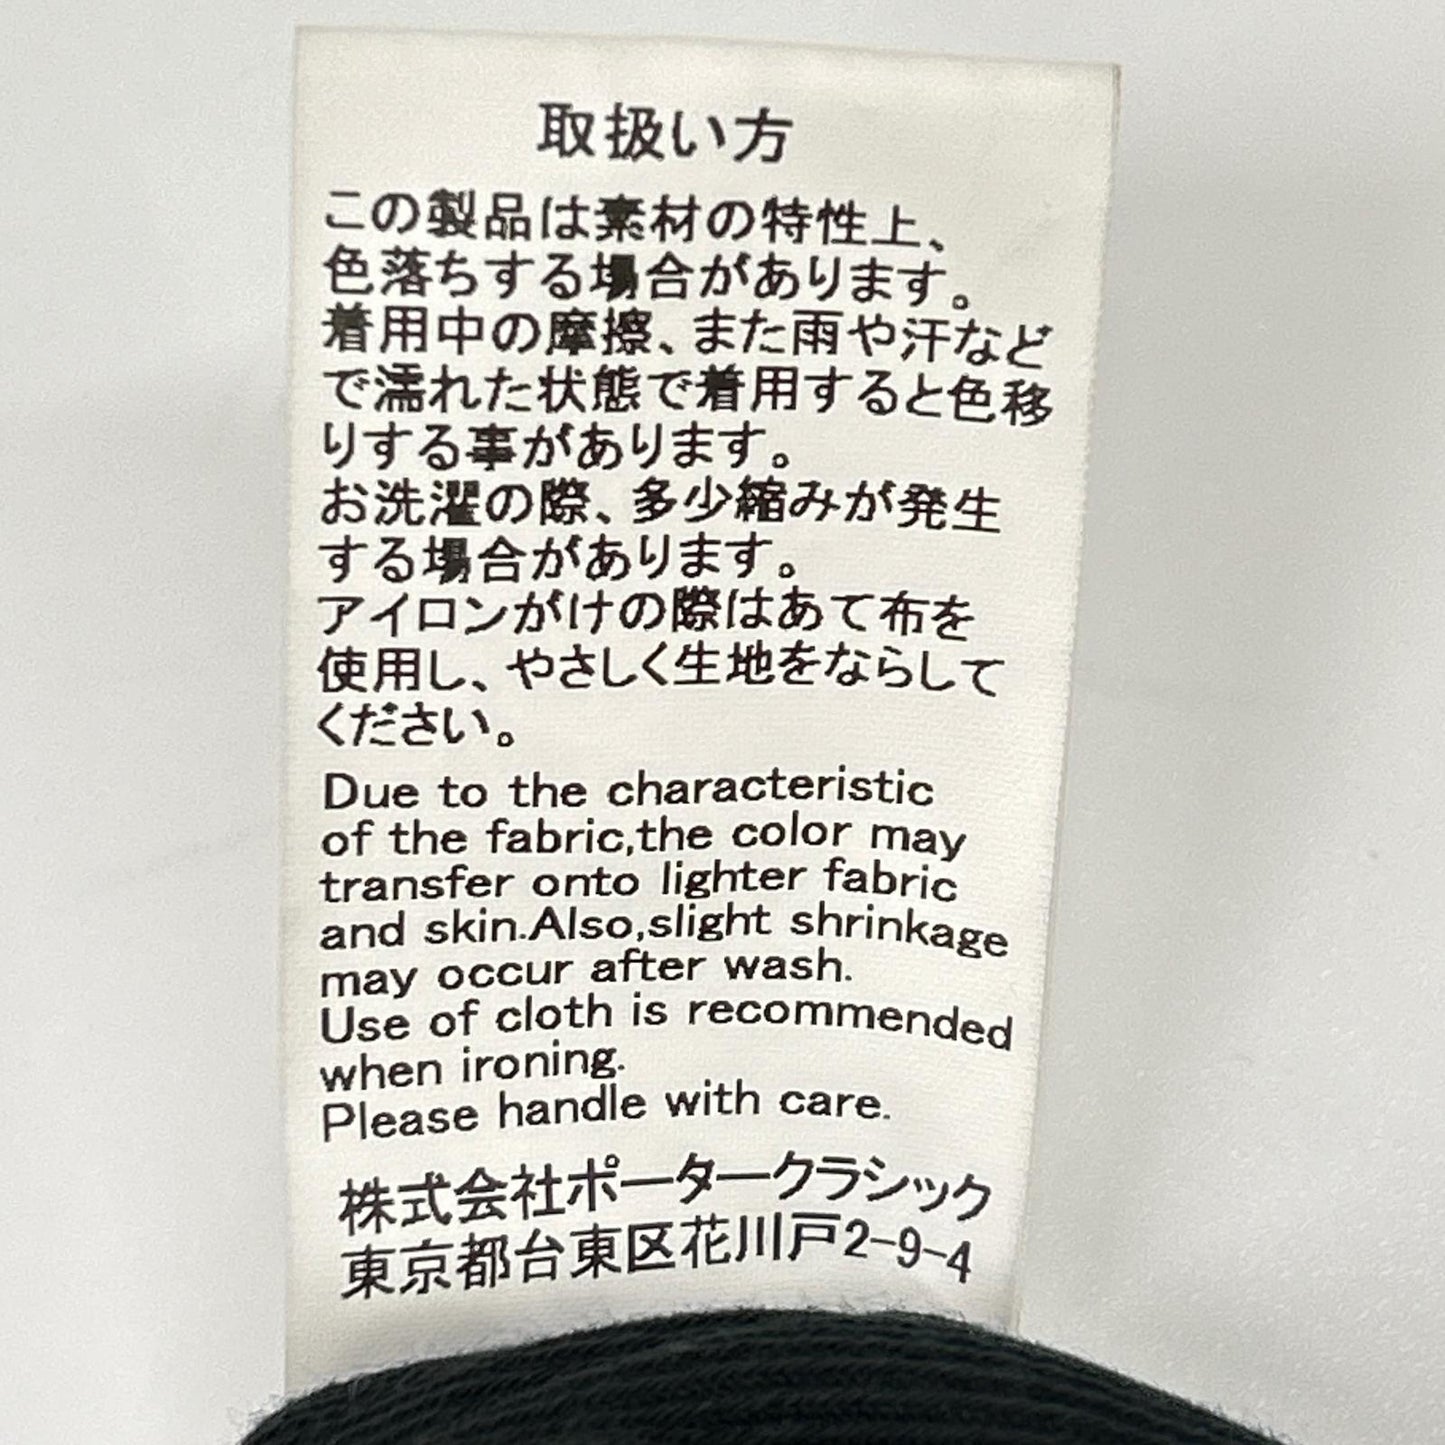 取扱い方
この製品は素材の特性上、
色落ちする場合があります。
着用中の摩擦、また雨や汗など
で濡れた状態で着用すると色移
りする事があります。
お洗濯の際、多少縮みが発生
する場合があります。
アイロンがけの際はあて布を
使用し、やさしく生地をならして
ください。
Due to the characteristic
of the fabric,the color may
transfer onto lighter fabric
and skin.Also,slight shrinkage
may occur after wash.
Use of cloth is recommended
when ironing.
Please handle with care.
株式会社ポータークラシック
東京都台東区花川戸2-9-4